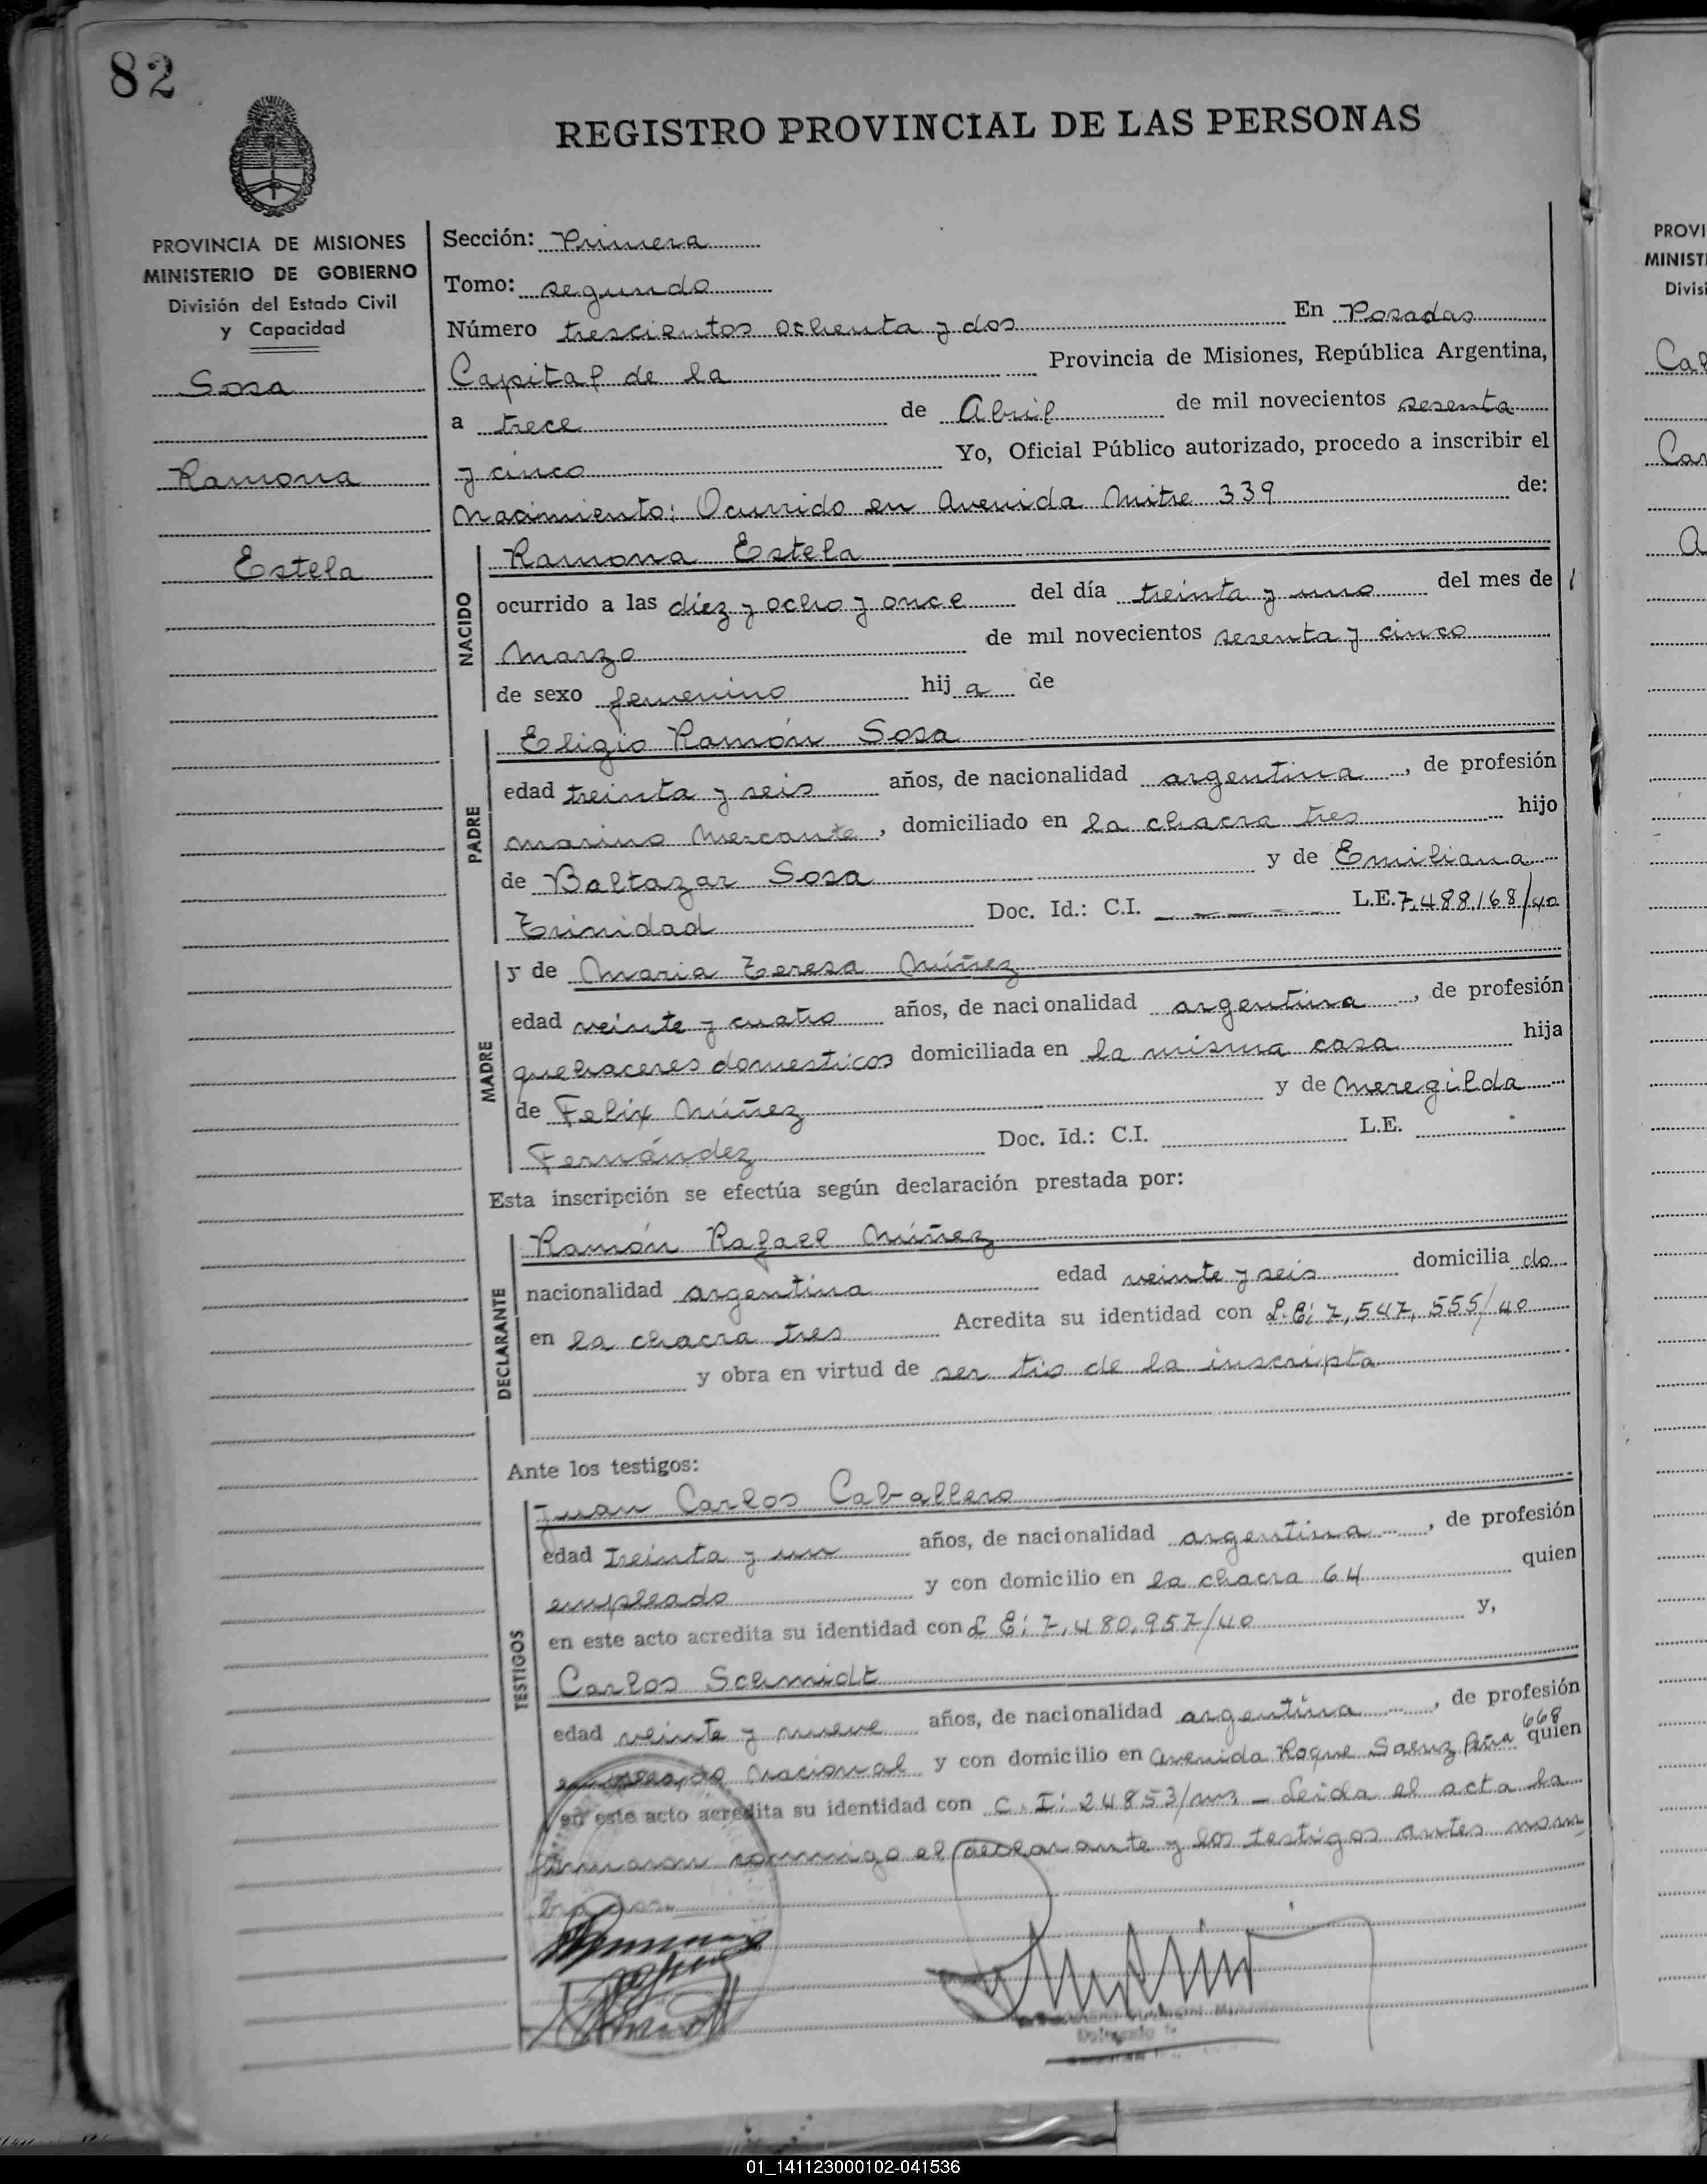 82
REGISTRO PROVINCIAL DE LAS PERSONAS
PROVINCIA DE MISIONES
MINISTERIO DE GOBIERNO
División del Estado Civil
y Capacidad
Sosa
Ramona
Estela
Sección: Primera
Tomo: segundo
Número trescientos ochenta y dos En Posadas
Capital de la Provincia de Misiones, República Argentina,
a trece de Abril de mil novecientos sesenta
y cinco Yo, Oficial Público autorizado, procedo a inscribir el
Nacimiento: Ocurrido en Avenida Mitre 339 de:
NACIDO
Ramona Estela
ocurrido a las diez y ocho y once del día treinta y uno del mes de
Marzo de mil novecientos sesenta y cinco
de sexo femenino hij a de
PADRE
Eligio Ramón Sosa
edad treinta y seis años, de nacionalidad argentina, de profesión
marino mercante, domiciliado en la chacra tres hijo
de Baltazar Sosa y de Emiliana
Trinidad Doc. Id.: C.I. L.E. 7.488.168/40
MADRE
y de Maria Teresa Núñez
edad veinte y cuatro años, de nacionalidad argentina, de profesión
quehaceres domesticos domiciliada en la misma casa hija
de Felix Núñez y de Meregilda
Fernández Doc. Id.: C.I. L.E.
Esta inscripción se efectúa según declaración prestada por:
DECLARANTE
Ramón Rafael Núñez
nacionalidad argentina edad veinte y seis domicilia do
en la chacra tres Acredita su identidad con L.E: 7,547,555/40
y obra en virtud de ser tio de la inscripta
Ante los testigos:
TESTIGOS
Juan Carlos Caballero
edad treinta y un años, de nacionalidad argentina, de profesión
empleado y con domicilio en la chacra 64 quien
en este acto acredita su identidad con L E: 7,480,957/40 y,
Carlos Schmidt
edad veinte y nueve años, de nacionalidad argentina, de profesión
empleado nacional y con domicilio en Avenida Roque Saenz Peña 668 quien
en este acto acredita su identidad con C. I: 24853/ms - Leida el acta la
firmaron conmigo el declarante y los testigos antes nom
brados.
Delegado
PROVI
MINIST
Divisi
01_141123000102-041536